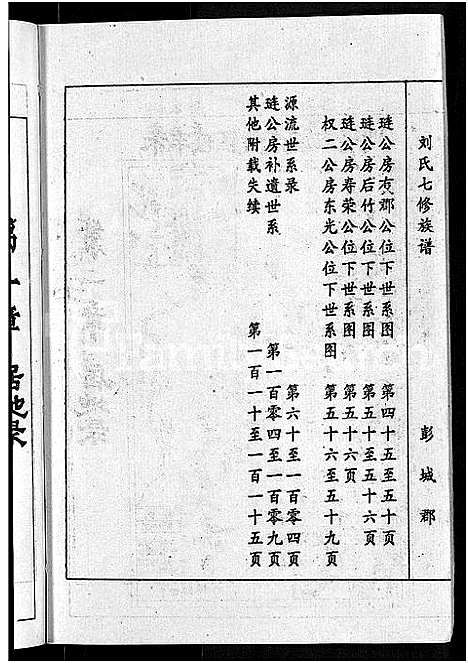 刘氏七修族谱
彭城郡
琏公房友郡公位下世系图 第四十五至五十页
琏公房后竹公位下世系图 第五十至五十六页
琏公房寿荣公位下世系图 第五十六页
权二公房东光公位下世系图 第五十六至五十九页
源流世系录 第六十至一百零四页
琏公房补遗世系 第一百零四至一百零九页
其他附载失续 第一百一十至一百一十五页